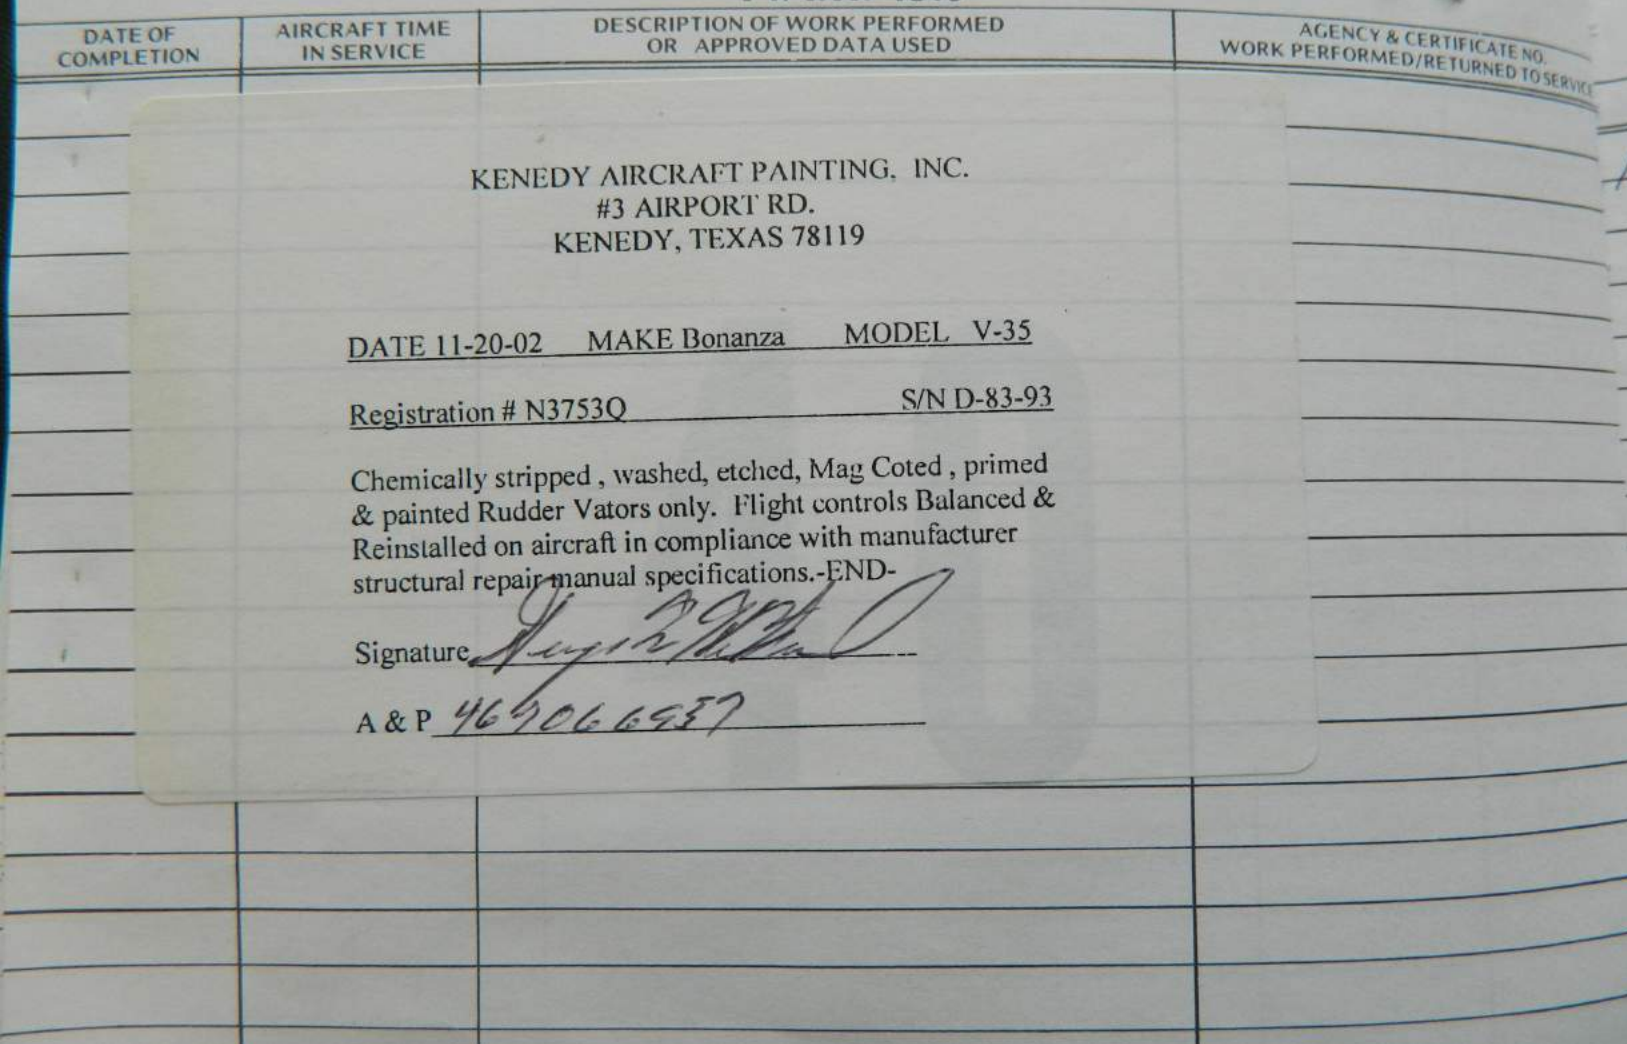 DATE OF COMPLETION
AIRCRAFT TIME IN SERVICE
DESCRIPTION OF WORK PERFORMED OR APPROVED DATA USED
AGENCY & CERTIFICATE NO. WORK PERFORMED/RETURNED TO SERVICE
KENEDY AIRCRAFT PAINTING, INC.
#3 AIRPORT RD.
KENEDY, TEXAS 78119
DATE 11-20-02 MAKE Bonanza MODEL V-35
Registration # N3753Q S/N D-83-93
Chemically stripped , washed, etched, Mag Coted , primed
& painted Rudder Vators only. Flight controls Balanced &
Reinstalled on aircraft in compliance with manufacturer
structural repair manual specifications.-END-
Signature
A & P